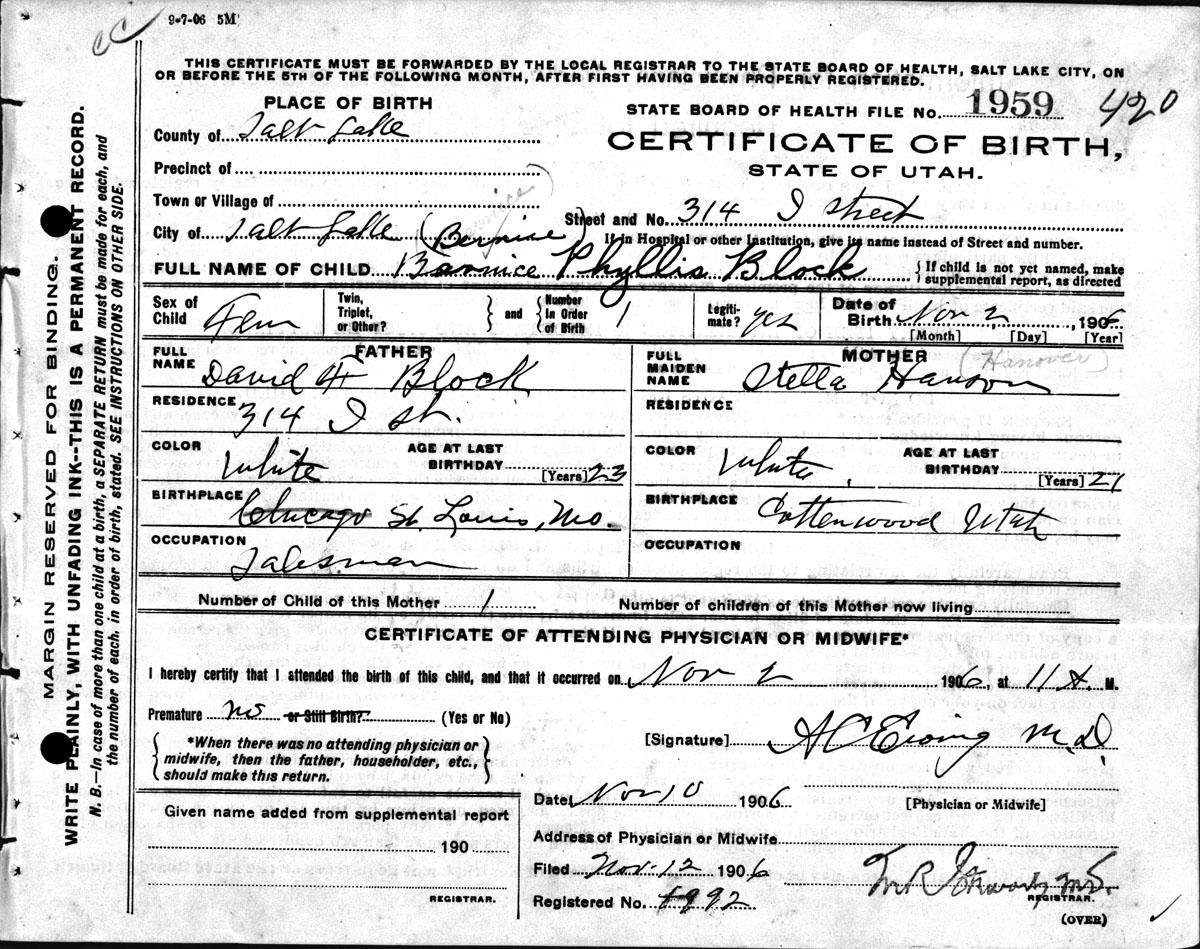 9-7-06 5M
CC
THIS CERTIFICATE MUST BE FORWARDED BY THE LOCAL REGISTRAR TO THE STATE BOARD OF HEALTH, SALT LAKE CITY, ON
OR BEFORE THE 5TH OF THE FOLLOWING MONTH, AFTER FIRST HAVING BEEN PROPERLY REGISTERED.
PLACE OF BIRTH
STATE BOARD OF HEALTH FILE No. 1959 420
County of Salt Lake
CERTIFICATE OF BIRTH,
STATE OF UTAH.
Precinct of
Town or Village of
Bernice
Street and No. 314 I Street
City of Salt Lake (Bernise)
If in Hospital or other Institution, give its name instead of Street and number.
FULL NAME OF CHILD Barnice Phyllis Block
{ If child is not yet named, make supplemental report, as directed
Sex of Child Fem
Twin, Triplet, or Other? } and { Number In Order of Birth 1
Legitimate? yes
Date of Birth Nov 2, 1906
[Month] [Day] [Year]
FATHER
FULL NAME David F Block
RESIDENCE 314 I St.
COLOR White AGE AT LAST BIRTHDAY 23 [Years]
BIRTHPLACE Chicago St. Louis, Mo.
OCCUPATION Salesman
MOTHER
FULL MAIDEN NAME Stella Hanson (Hanover)
RESIDENCE
COLOR White. AGE AT LAST BIRTHDAY 21 [Years]
BIRTHPLACE Cottenwood Utah
OCCUPATION
Number of Child of this Mother 1 Number of children of this Mother now living
CERTIFICATE OF ATTENDING PHYSICIAN OR MIDWIFE*
I hereby certify that I attended the birth of this child, and that it occurred on Nov 2 1906, at 11 A. M.
Premature no or Still Birth? (Yes or No)
{ *When there was no attending physician or midwife, then the father, householder, etc., should make this return. }
[Signature] A C Ewing M.D.
[Physician or Midwife]
Date Nov 10 1906
Given name added from supplemental report
190
REGISTRAR.
Address of Physician or Midwife
Filed Nov. 12 1906
Registered No. 1992
REGISTRAR.
(OVER)
MARGIN RESERVED FOR BINDING.
WRITE PLAINLY, WITH UNFADING INK--THIS IS A PERMANENT RECORD.
N. B.—In case of more than one child at a birth, a SEPARATE RETURN must be made for each, and
the number of each, in order of birth, stated. SEE INSTRUCTIONS ON OTHER SIDE.